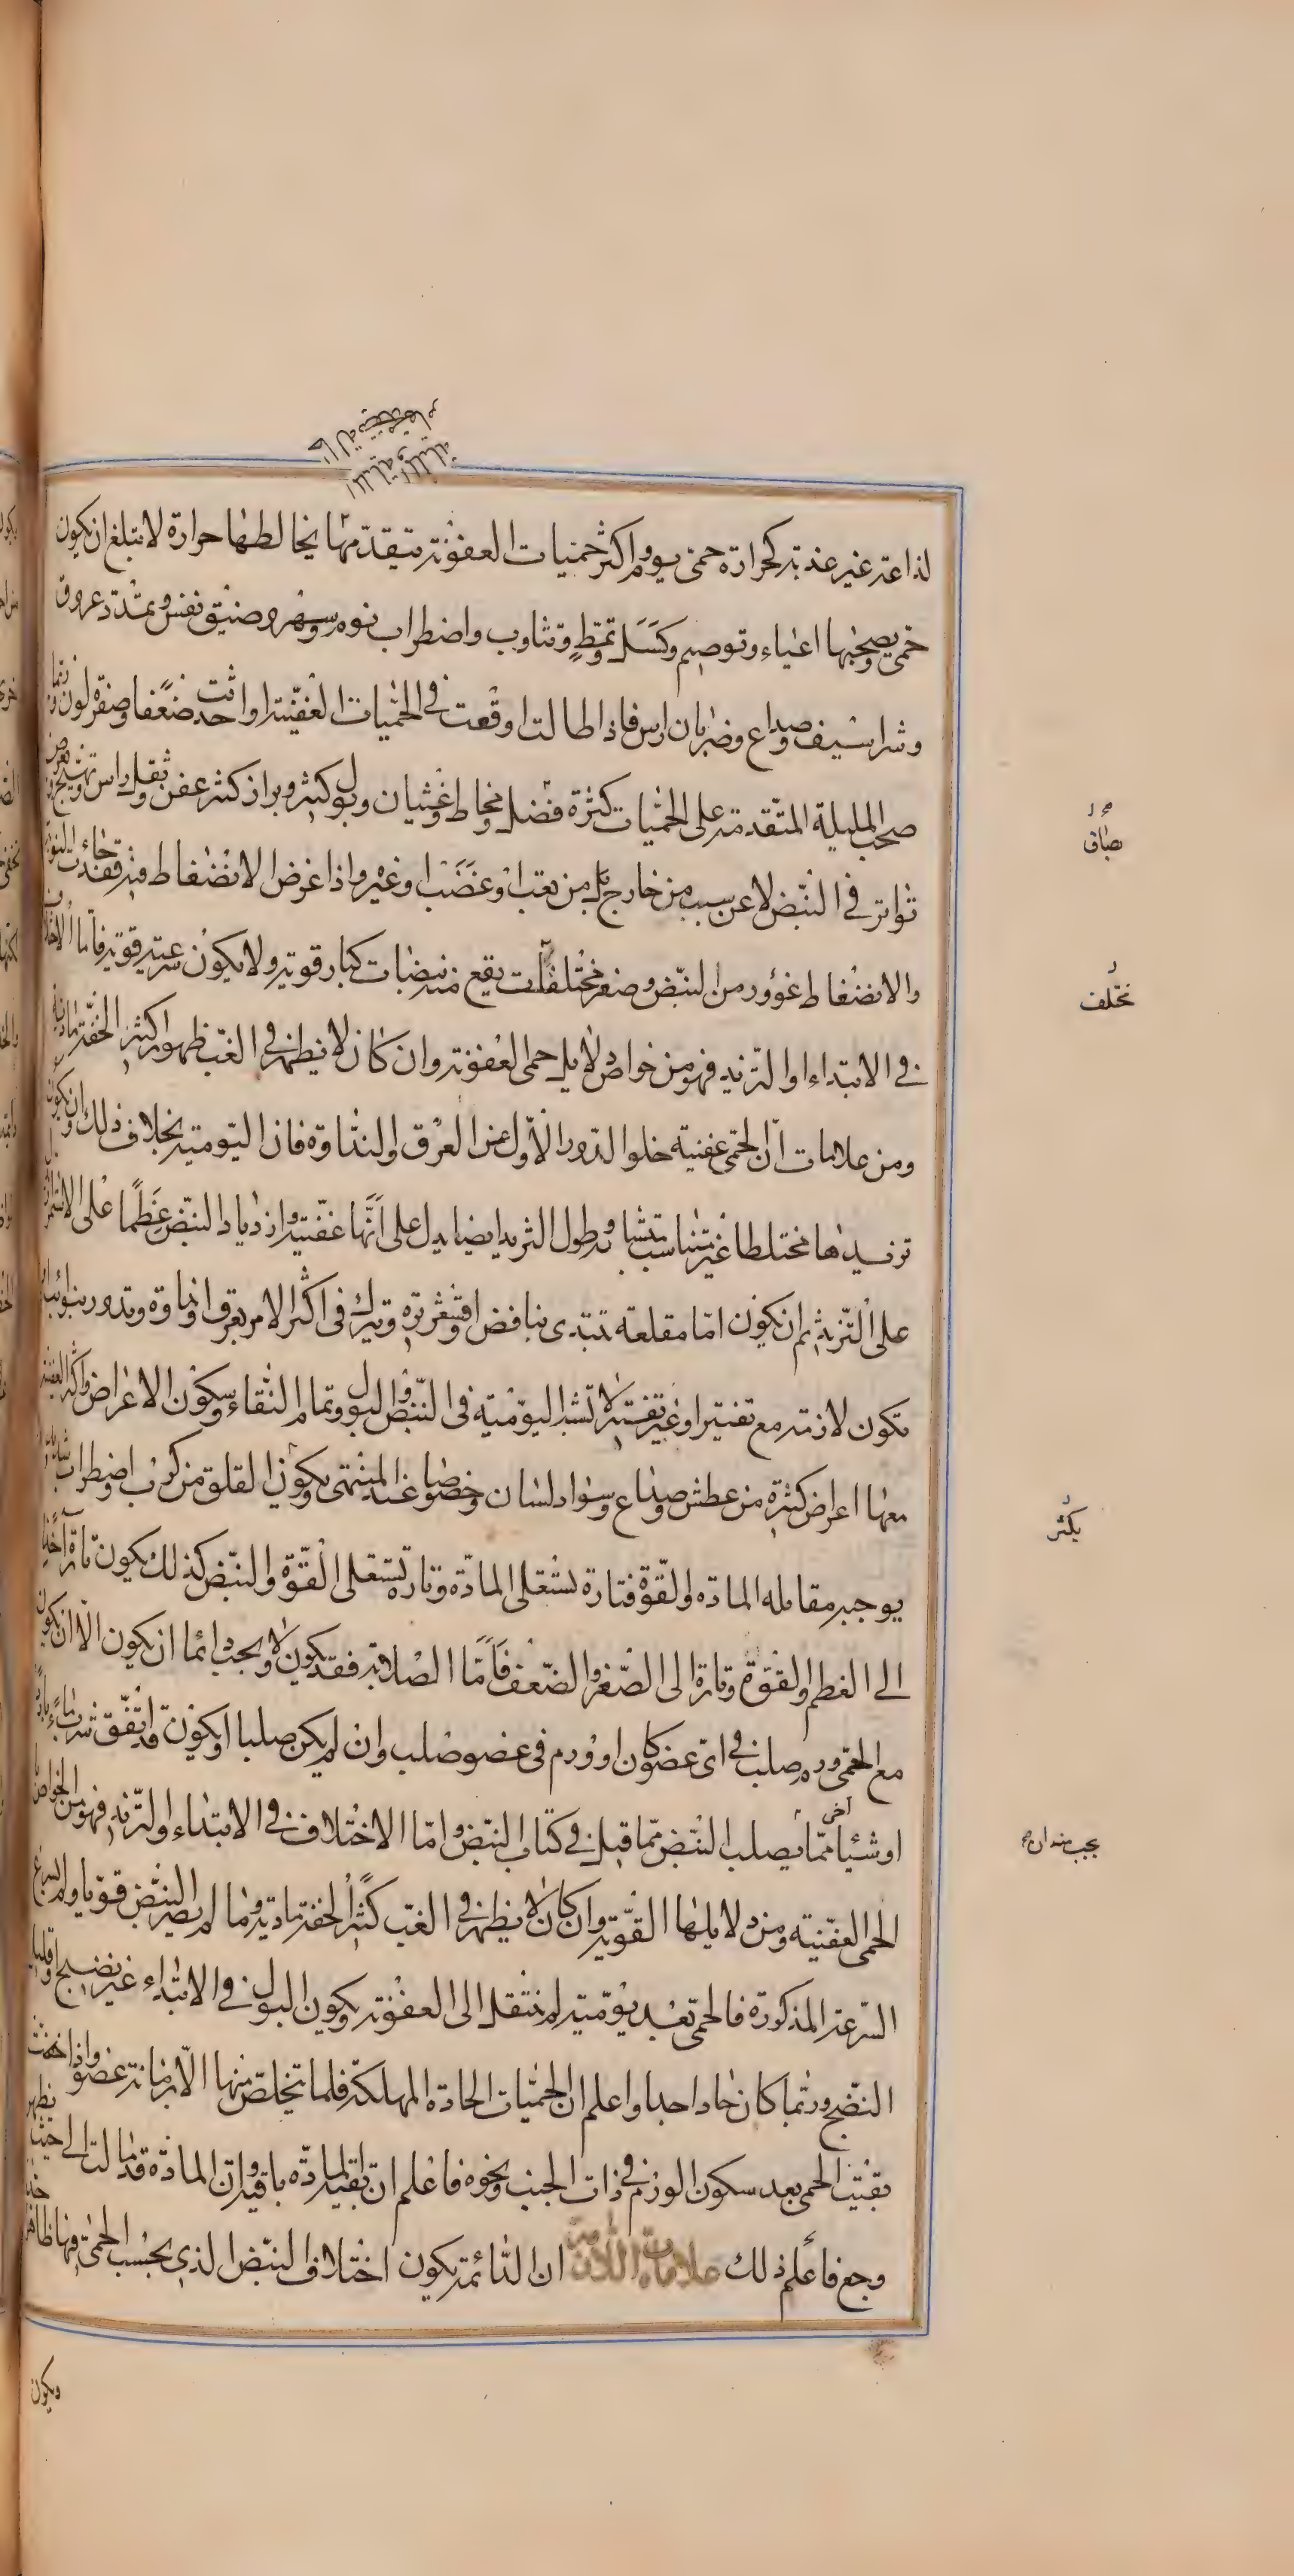 لذاعة غير عذبة كحرارة حمى يوم واكثر حميات العفونة يتقدمها يخالطها حرارة لا تبلغ ان يكون
حمى ويصحبها اعياء وتوصيم وكسل وتمط وتثاوب واضطراب نوم وسهر وضيق نفس وتمدد عروق
وشراسيف وصداع وضربان راس فاذا طالت اوقعت في الحميات العفنية واحدثت ضعفا وصفرة لون
صحب المليلة المتقدمة على الحميات كثرة فضل مخاط وغثيان وبول كثير وبراز كثير عفن وثقل راس وتهيج
تواتر في النبض لا عن سبب من خارج بل من تعب او غضب او غيره واذا عرض الانضغاط فيه فقد جاءت النوبة
والانضغاط غوور من النبض وصغر مختلفات يقع منه نبضات كبار قوية ولا يكون سرعته قوية فاما
في الابتداء او التزيد فهو من خواص دلايل حمى العفونة وان كان لا يظهر في الغب ظهوره كثيرا لخفة مادته
ومن علامات ان الحمى عفنية خلو الدور الاول عن العرق والنداوة فان اليومية بخلاف ذلك وان يكون
تزيدها مختلطا غير متناسب متشابه وطول التزيد ايضا يدل على انها عفنية وازدياد النبض عظما على الاستمرار
على التزيد ثم ان يكون اما مقلعة تبتدى بنافض او قشعريرة وتترك في اكثر الامر بعرق او نداوة وتدور بنوائب او
تكون لازمة مع تفتير او غير تفتير لا تشبه اليومية في النبض والبول وتمام النقاء وسكون الاعراض واكثر العفنية
معها اعراض كثيرة من عطش وصداع وسواد لسان وخصوصا عند المنتهى ويكون القلق من كرب واضطراب شديد
يوجبه مقابله المادة والقوة فتارة تستعلى المادة وتارة تستعلى القوة والنبض كذلك يكون تارة اخذا
الى العظم والقوة وتارة الى الصغر والضعف فاما الصلابة فقد يكون ولا يجب دائما ان يكون الا ان يكون
مع الحمى ورم صلب في اى عضو كان او ورم في عضو صلب وان لم يكن صلبا او يكون قد اتفق شرب ماء بارد
او شيئا اخر مما يصلب النبض مما قيل في كتاب النبض واما الاختلاف في الابتداء والتزيد فهو من الخواص
الحمى العفنية ومن دلايلها القوية وان كان لا يظهر في الغب كثيرا لخفة مادته وما لم يصر النبض قويا ولم يسرع
السرعة المذكورة فالحمى بعد يومية لم تنتقل الى العفونة ويكون البول في الابتداء غير نضيج او قليل
النضج وربما كان حادا جدا واعلم ان الحميات الحادة المهلكة فلما تخلص منها الا بزمانة عضو واذا
بقيت الحمى بعد سكون الورم في ذات الجنب ونحوه فاعلم ان بقية المادة باقية وان المادة قد مالت الى حيث
وجع فاعلم ذلك علامات اللازمة ان الدائمة يكون اختلاف النبض الذي بحسب الحمى فيها ظاهرا
ويكون
بصاق
مختلف
يكثر
يجب منه ان